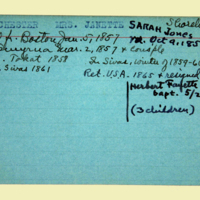 CHESTER MRS. JANETTE SARAH
Jones
Boston Jan. 5, 1857 Oct 9, 185
Smyrna Mar. 2, 1857 & Consple
Tokat 1858 In Sivas, Winter of 1859-60
Sivas 1861 Ret. U.S.A. 1865 & resigned
Herbert Fayette
bapt. 5/2
(3 children)